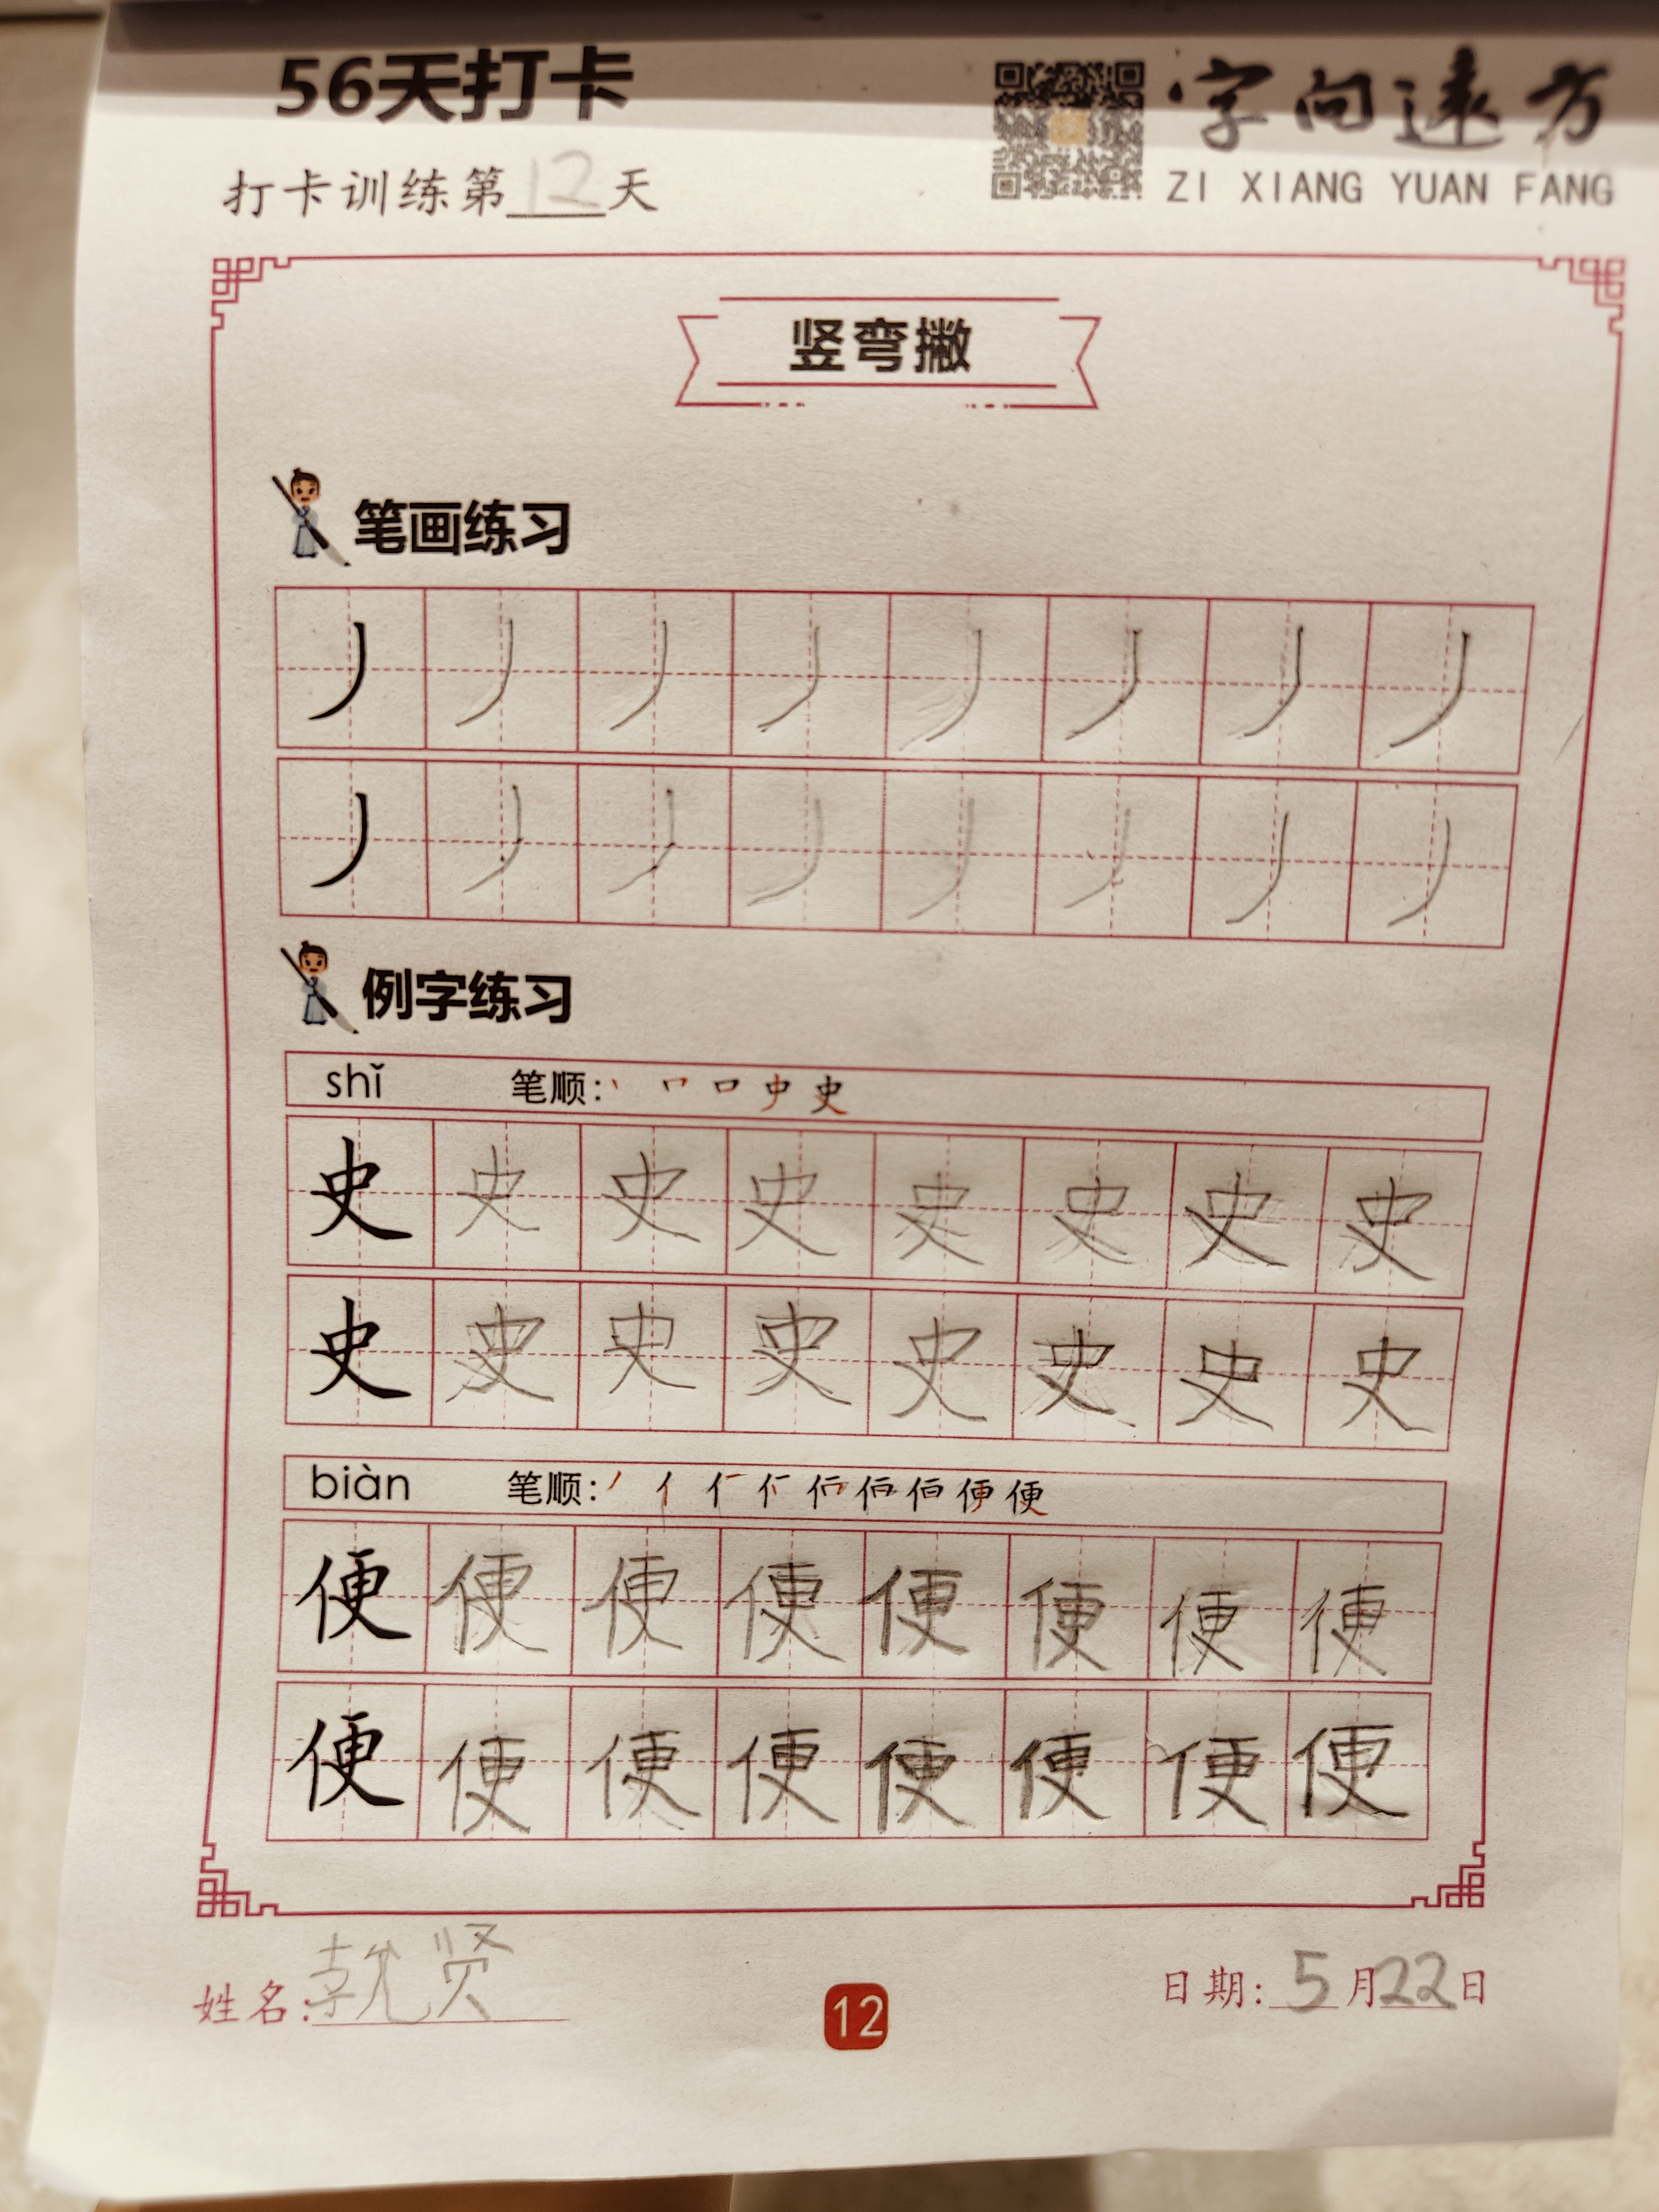 56天打卡
字向远方
打卡训练第12天
ZI XIANG YUAN FANG
竖弯撇
笔画练习
丿 丿 丿 丿 丿 丿 丿 丿
丿 丿 丿 丿 丿 丿 丿 丿
例字练习
shǐ 笔顺:丶 口 史
史 史 史 史 史 史 史 史
史 史 史 史 史 史 史 史
biàn 笔顺:丿 亻 便 便
便 便 便 便 便 便 便 便
便 便 便 便 便 便 便 便
姓名: 贤
12
日期:5月22日